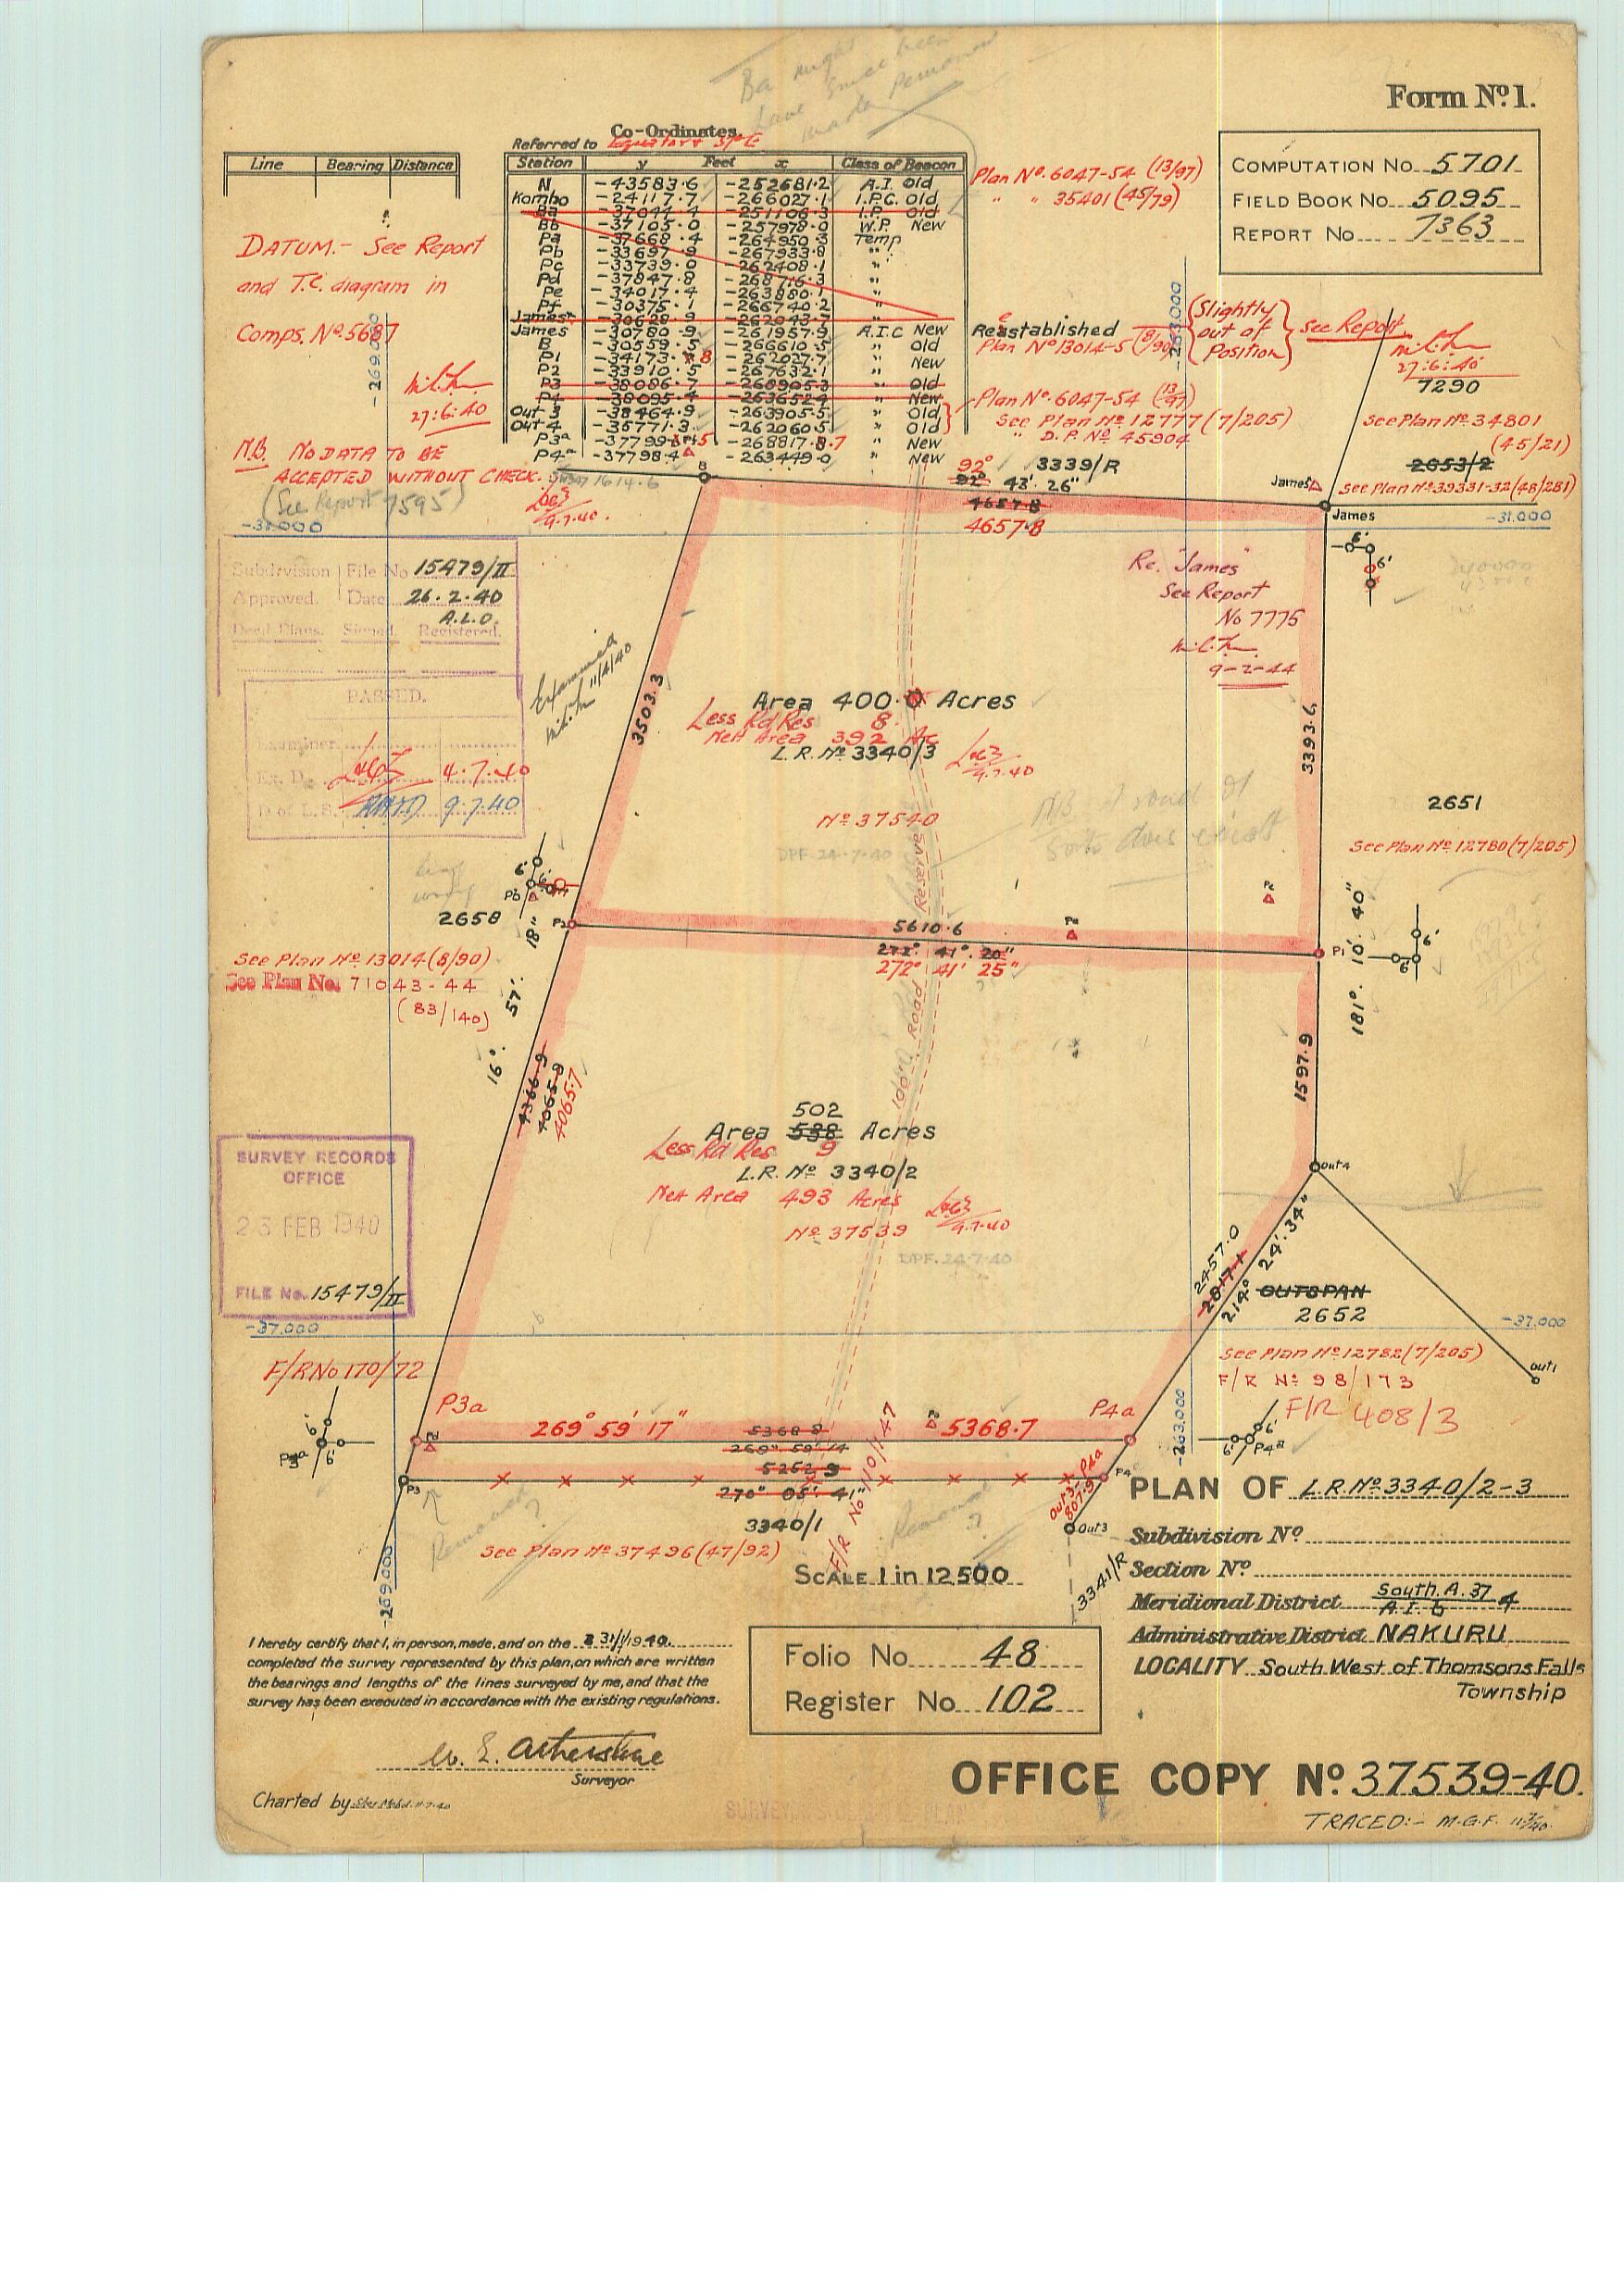 Form Nº 1.
COMPUTATION No 5701
FIELD BOOK No 5095
REPORT No 7363
Co-Ordinates.
Referred to Equator & 37° E
Line Bearing Distance
Station y Feet x Class of Beacon
N -43583.6 -252681.2 A.I. Old
Kombo -24117.7 -266027.1 I.P.C. Old
Ba -37044.4 -251106.3 I.P. Old
Bb -37105.0 -257978.0 W.P. New
Pa -37668.4 -264950.3 Temp
Pb -33697.9 -267933.8 "
Pc -33739.0 -262408.1 "
Pd -37847.8 -268716.3 "
Pe -34017.4 -263880.1 "
Pf -30375.1 -266740.2 "
James -30780.9 -261957.9 A.I.C New
B -30559.5 -266610.5 " Old
P1 -34173.8 -262027.7 " New
P2 -33910.5 -267632.1
P3 -38086.7 -268905.3 " Old
P4 -38095.4 -263652.4 New
Out 3 -38464.9 -263905.5 " Old
Out 4 -35771.3 -262060.5 " Old
P3a -37799.5 -268817.7 " New
P4a -37798.4 -263449.0 " New
Plan Nº. 6047-54 (13/97)
" " 35401 (45/79)
Reestablished
Plan Nº 13014-5 (8/90)
(Slightly out of Position)
see Report
27:6:40
7290
Plan Nº. 6047-54 (13/97)
See Plan Nº 12777 (7/205)
" D.P. Nº 45904
See Plan Nº 34801
(45/21)
2653/2
See Plan Nº 39331-32 (48/281)
DATUM.- See Report
and T.C. diagram in
Comps. Nº 5687
27:6:40
N.B. NO DATA TO BE
ACCEPTED WITHOUT CHECK.
(See Report 7595)
-269.000
-263.000
-31.000
-31.000
1614.6
9.7.40.
B
92°
92° 43' 26"
3339/R
4657.8
4657.8
James
James
6'
6'
Re. "James"
See Report
No 7775
9-2-44
Subdivision File No 15479/II
Approved. Date 26.2.40
A.L.O.
Deed Plans. Signed. Registered.
PASSED.
Examiner
4.7.40
D of L.S. 9.7.40
Examined
11/4/40
3503.3
3393.6
Area 400.0 Acres
Less Rd Res 8.
Nett Area 392 Ac
L.R. Nº 3340/3
9.7.40
Nº 37540
DPF. 24-7-40
2651
See Plan Nº 12780 (7/205)
6'
6'
Pb
P2
2658
See Plan Nº. 13014 (8/90)
See Plan No. 71043-44
(83/140)
16°. 57'. 18"
5610.6
272° 41' 20"
272° 41' 25"
Pe
Pc
P1
6'
6'
181°. 10'. 40"
1597.9
4366.9
4065.9
4065.7
100' Road Reserve
502
Area 538 Acres
Less Rd Res 9
L.R. Nº 3340/2
Nett Area 493 Acres
9.7.40
Nº 37539
DPF. 24-7-40
Out 4
SURVEY RECORDS
OFFICE
23 FEB 1940
FILE No. 15479/II
2457.0
2817.1
214° 24'. 34"
OUTSPAN
2652
-37.000
-37.000
See Plan Nº 12782 (7/205)
F/R Nº 98/173
F/R 408/3
F/R No 170/72
Out 1
P3a
269° 59' 17"
5368.7
P4a
5368.8
269° 59' 14
5252.9
270° 05' 41"
6'
6'
P3a
P3
Pa
P4
6'
6'
P4a
-263.000
-269.000
Out 3 - P4a
807.9
Out 3
F/R No 110/147
Removed ?
Removed ?
3340/1
See Plan Nº 37496 (47/92)
SCALE 1 in 12500
3341/R
PLAN OF L.R. Nº 3340/2-3
Subdivision Nº
Section Nº
Meridional District South. A. 37 A.I. b 4
Administrative District NAKURU
LOCALITY South West of Thomsons Falls
Township
I hereby certify that I, in person, made, and on the 31/1/1940.
completed the survey represented by this plan, on which are written
the bearings and lengths of the lines surveyed by me, and that the
survey has been executed in accordance with the existing regulations.
W. E. Atherstone
Surveyor
Charted by
Folio No 48
Register No 102
OFFICE COPY Nº 37539-40.
TRACED:- M.G.F.